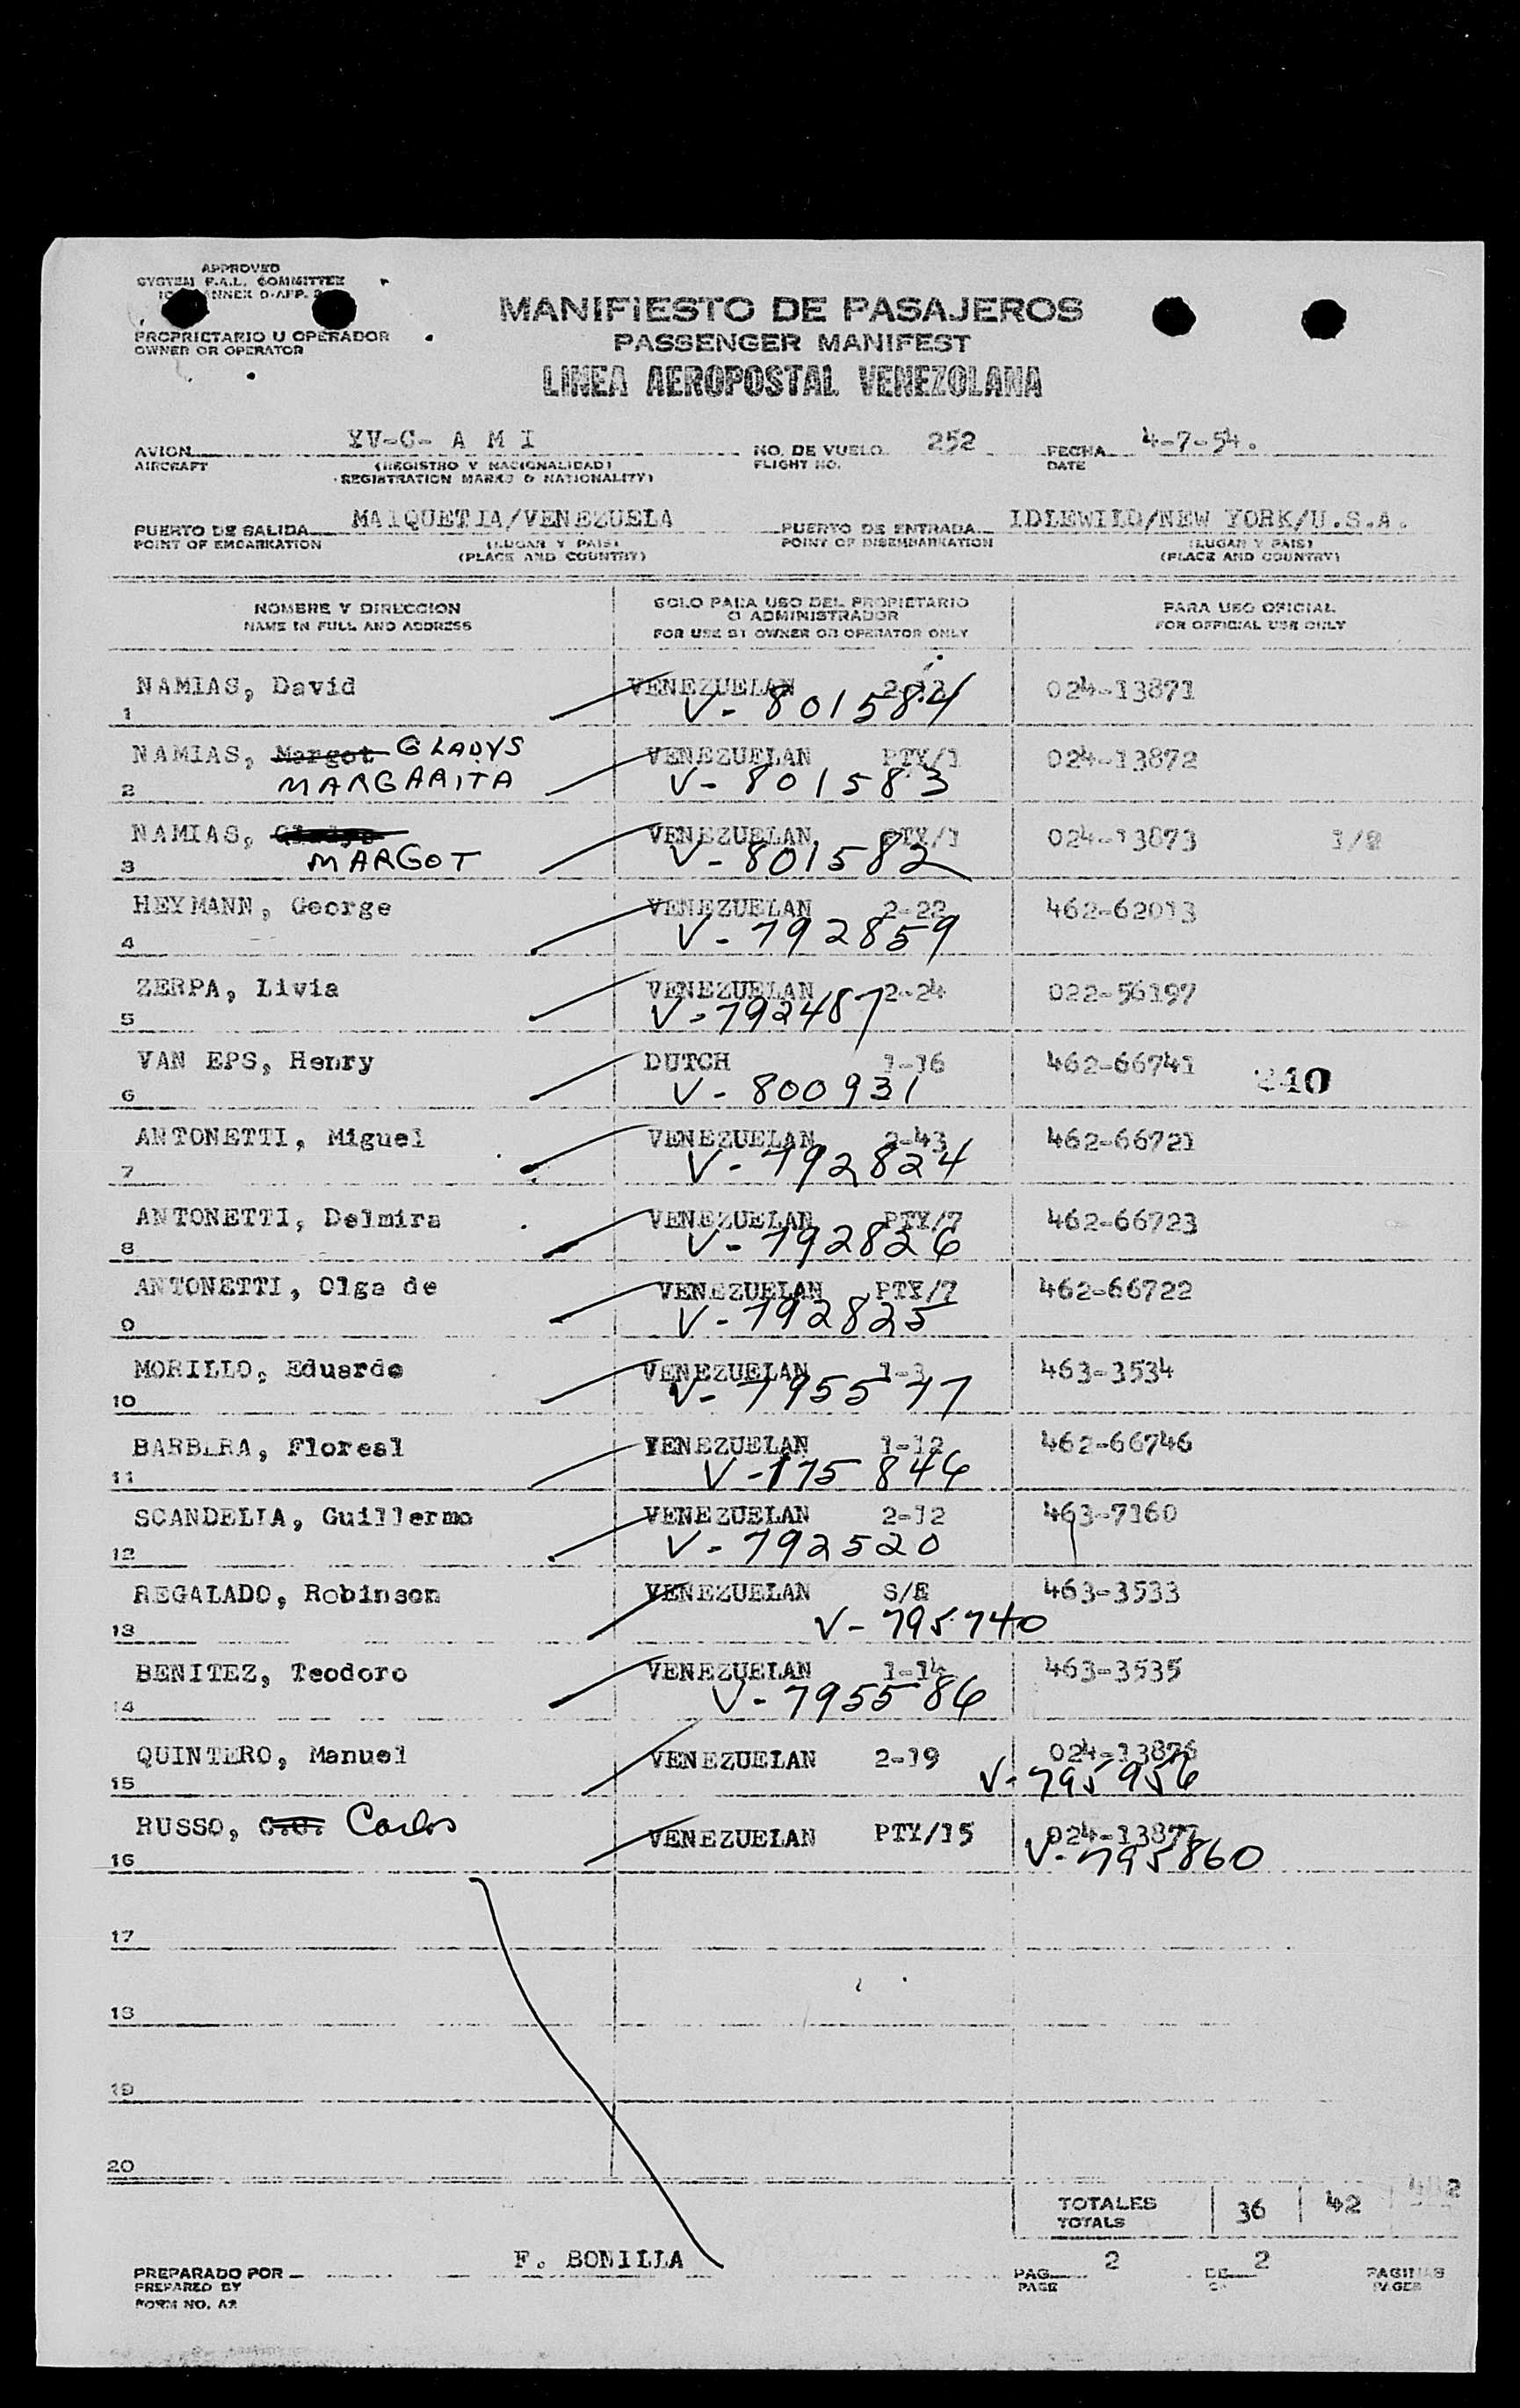 APPROVED
SYSTEM F.A.L. COMMITTEE
ANNEX 9-APP.
PROPRIETARIO U OPERADOR
OWNER OR OPERATOR
MANIFIESTO DE PASAJEROS
PASSENGER MANIFEST
LINEA AEROPOSTAL VENEZOLANA
AVION YV-C- A M I NO. DE VUELO 252 FECHA 4-7-54.
AIRCRAFT (REGISTRO Y NACIONALIDAD) FLIGHT NO. DATE
REGISTRATION MARKS & NATIONALITY)
PUERTO DE SALIDA MAIQUETIA/VENEZUELA PUERTO DE ENTRADA IDLEWILD/NEW YORK/U.S.A.
POINT OF EMBARKATION (LUGAR Y PAIS) POINT OF DISEMBARKATION (LUGAR Y PAIS)
(PLACE AND COUNTRY) (PLACE AND COUNTRY)
NOMBRE Y DIRECCION SOLO PARA USO DEL PROPIETARIO PARA USO OFICIAL
NAME IN FULL AND ADDRESS O ADMINISTRADOR FOR OFFICIAL USE ONLY
FOR USE BY OWNER OR OPERATOR ONLY
NAMIAS, David VENEZUELAN 024-13871
1 V- 801584
NAMIAS, Margot GLADYS VENEZUELAN PTY/1 024-13872
2 MARGARITA V- 801583
NAMIAS, VENEZUELAN PTY/1 024-13873 1/2
3 MARGOT V-801582
HEYMANN, George VENEZUELAN 2-22 462-62013
4 V-792859
ZERPA, Livia VENEZUELAN 2-24 022-56197
5 V-792487
VAN EPS, Henry DUTCH 1-16 462-66741
6 V- 800931 240
ANTONETTI, Miguel VENEZUELAN 2-43 462-66721
7 V-792824
ANTONETTI, Delmira VENEZUELAN PTY/7 462-66723
8 V-792826
ANTONETTI, Olga de VENEZUELAN PTY/7 462-66722
9 V-792825
MORILLO, Eduardo VENEZUELAN 1-3 463-3534
10 V-795577
BARBERA, Floreal VENEZUELAN 1-12 462-66746
11 V-175846
SCANDELIA, Guillermo VENEZUELAN 2-12 463-7160
12 V-792520
REGALADO, Robinson VENEZUELAN S/E 463-3533
13 V-795740
BENITEZ, Teodoro VENEZUELAN 1-14 463-3535
14 V-795586
QUINTERO, Manuel VENEZUELAN 2-19 024-13876
15 V-795956
RUSSO, C.C. Carlos VENEZUELAN PTY/15 024-13877
16 V-795860
17
18
19
20
TOTALES 36 42
TOTALS
PREPARADO POR F. BONILLA PAG. 2 DE 2 PAGINAS
PREPARED BY PAGE PAGES
FORM NO. A2